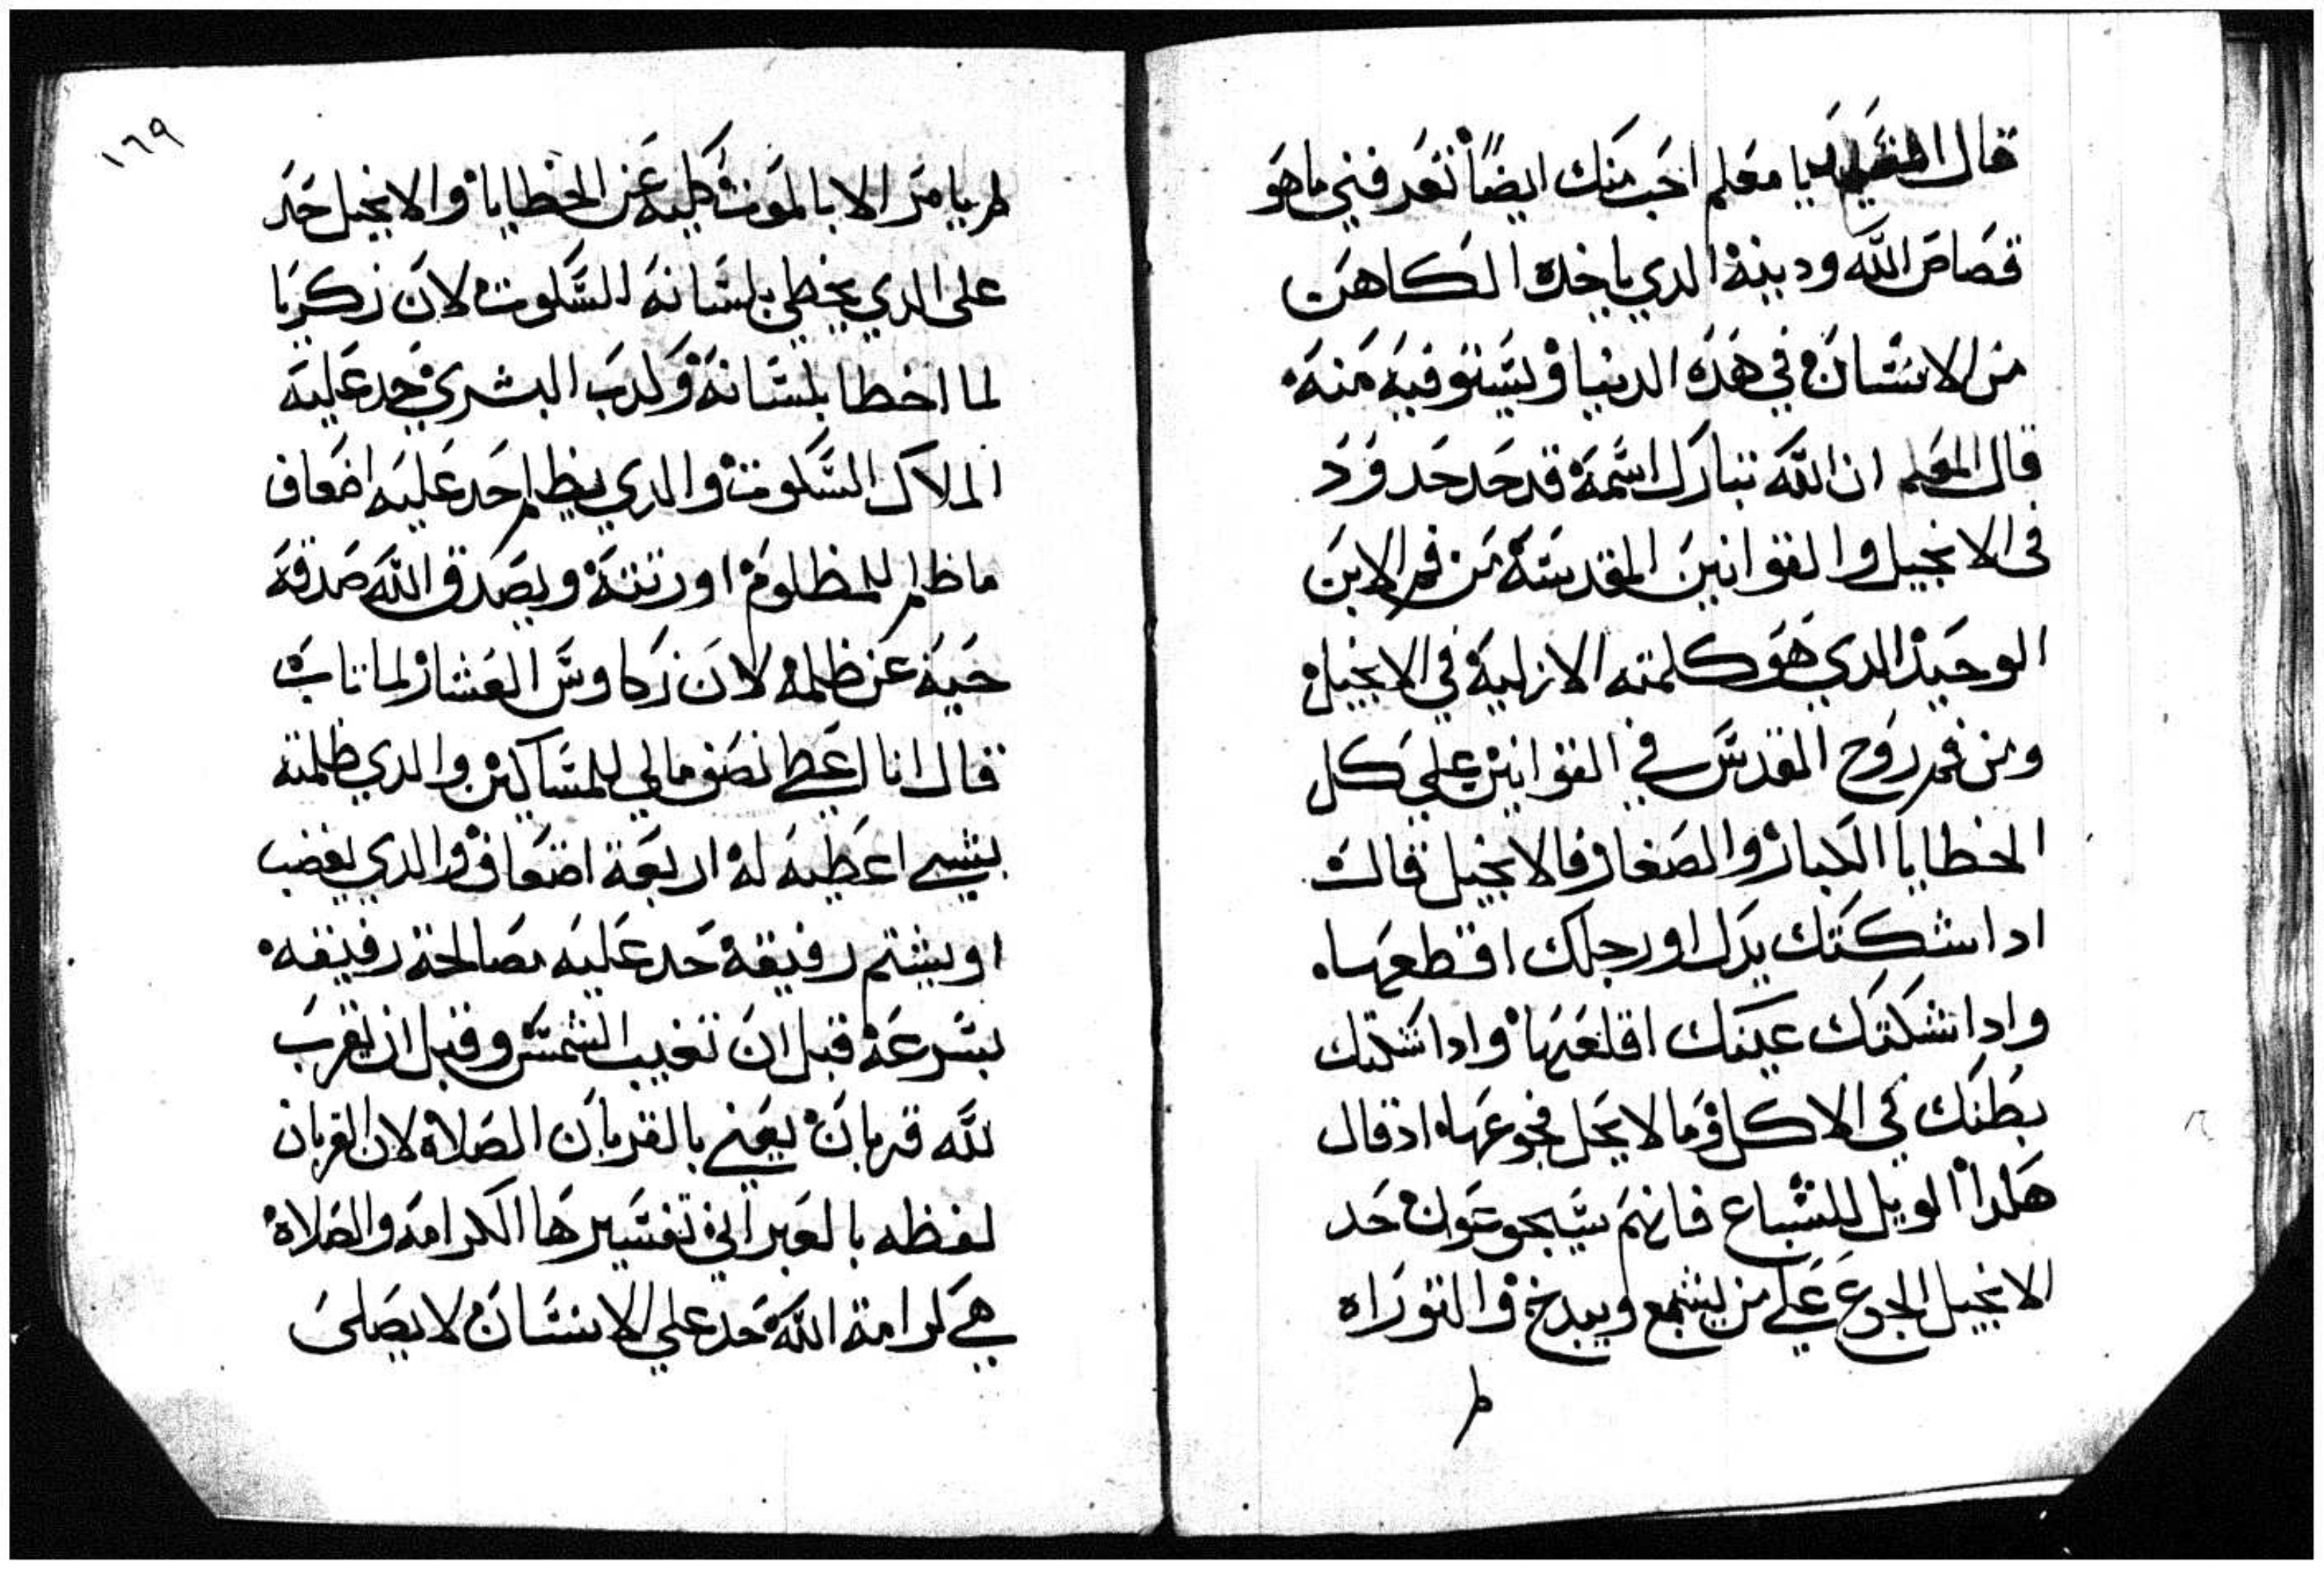 قال التلميذ يا معلم احب منك ايضًا تعرفني ما هو
قصاص الله ودينه الدي ياخده الكاهن
من الانسان في هذه الدنيا ويستوفيه منه
قال المعلم ان الله تبارك اسمه قد حد حدود
في الانجيل والقوانين المقدسه من فم الابن
الوحيد الدي هو كلمته الازلية في الانجيل
ومن فم روح القدس في القوانين علي كل
الخطايا الكبار والصغار فالانجيل قال
ادا شككتك يدك او رجلك اقطعها
وادا شككتك عينك اقلعها وادا شككتك
بطنك في الاكل وما لا يحل فجوعها اد قال
هكدا الويل للشباع فانهم سيجوعون حد
الانجيل الجوع علي من يشبع ويبدخ والتوراه
لم
١٦٩
لم يامر الا بالموت كليه عن الخطايا والانجيل حد
على الدي يخطي بلسانه السكوت لان زكريا
لما اخطا بلسانه وكدب البشري حد عليه
الملاك السكوت والدي يظلم حد عليه اضعاف
ما ظلم للمظلوم او رتته ويصدق الله صدقة
حيه عن ظلمه لان زكاوس العشار لما تاب
قال انا اعطي نصف مالي للمساكين والدي ظلمته
بشي اعطيه له اربعة اضعاف والدي يغضب
او يشتم رفيقه حد عليه مصالحة رفيقه
بسرعة قبل ان تغيب الشمس وقبل ان يقرب
لله قربان يعني بالقربان الصلاه لان القربان
لفظه بالعبراني تفسيرها الكرامه والصلاه
هي كرامة الله حد علي الانسان لا يصلى